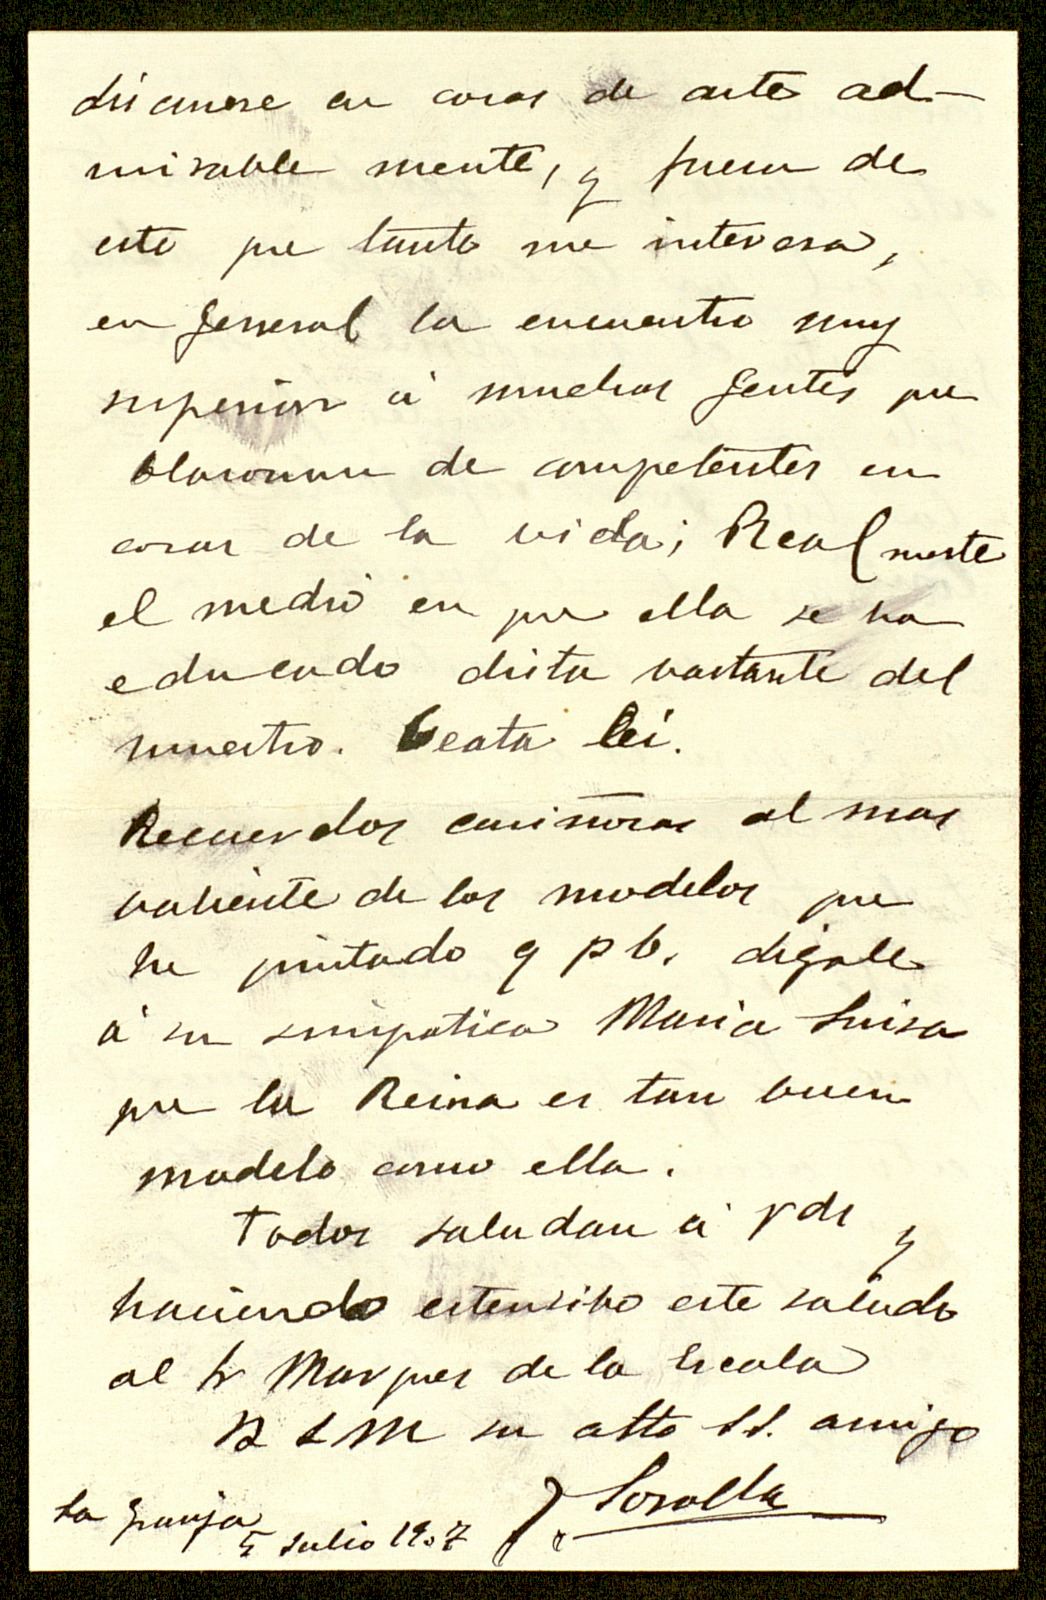 discurre en cosas de arte ad-
mirable mente, y fuera de
esto que tanto me interesa,
en general la encuentro muy
superior á muchas gentes que
blasonan de competentes en
cosas de la vida; Real mente
el medio en que ella se ha
educado dista vastante del
nuestro. beata lei.
Recuerdos cariñosos al mas
valiente de los modelos que
he pintado q p b. digale
á su simpatica Maria Luisa
que la Reina es tan buen
modelo como ella.
Todos saludan á Vds y
haciendo estensibo este saludo
al Sr Marques de la Scala
B L M su atto S.S. amigo
J. Sorolla
La Granja
5 Julio 1907